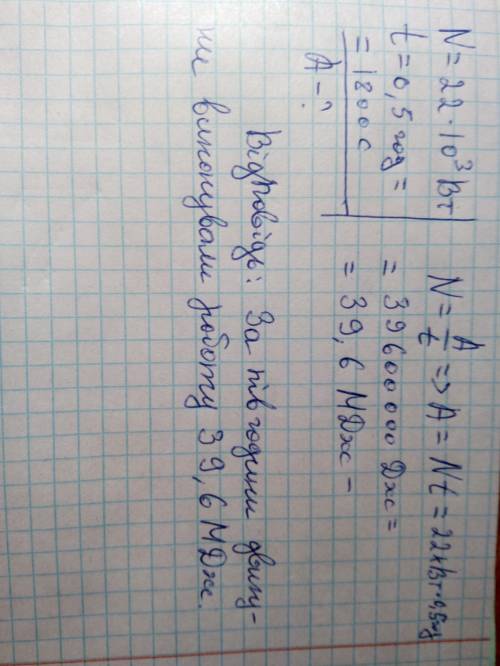 N = 22 · 10³ Вт
t = 0,5 год =
= 1800 с
A - ?
N = A/t => A = Nt = 22кВт·0,5год
= 39600000 Дж =
= 39,6 МДж -
Відповідь: За пів години двигу-
ни виконували роботу 39,6 МДж.